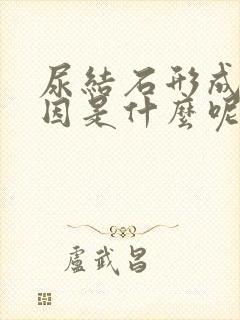 尿結石形成
因是什麼呢
盧武昌